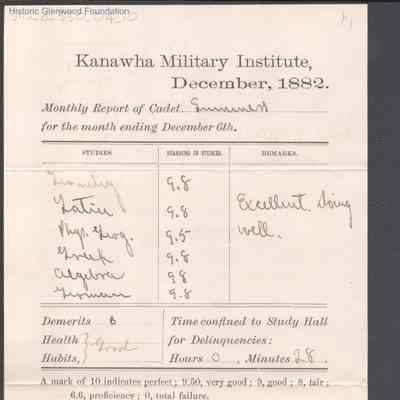 Historic Glenwood Foundation
Kanawha Military Institute,
December, 1882.
Monthly Report of Cadet
for the month ending December 6th.
STUDIES. STANDING IN STUDIES. REMARKS.
9.8
Latin 9.8 Excellent. Doing
Phys. Geog. 9.5 well.
Greek 9.8
Algebra 98
German 9.8
Demerits 6 Time confined to Study Hall
Health } Good for Delinquencies:
Habits, Hours 0, Minutes 28.
A mark of 10 indicates perfect; 9.50, very good; 9, good; 8, fair;
6.6, proficiency; 0, total failure.